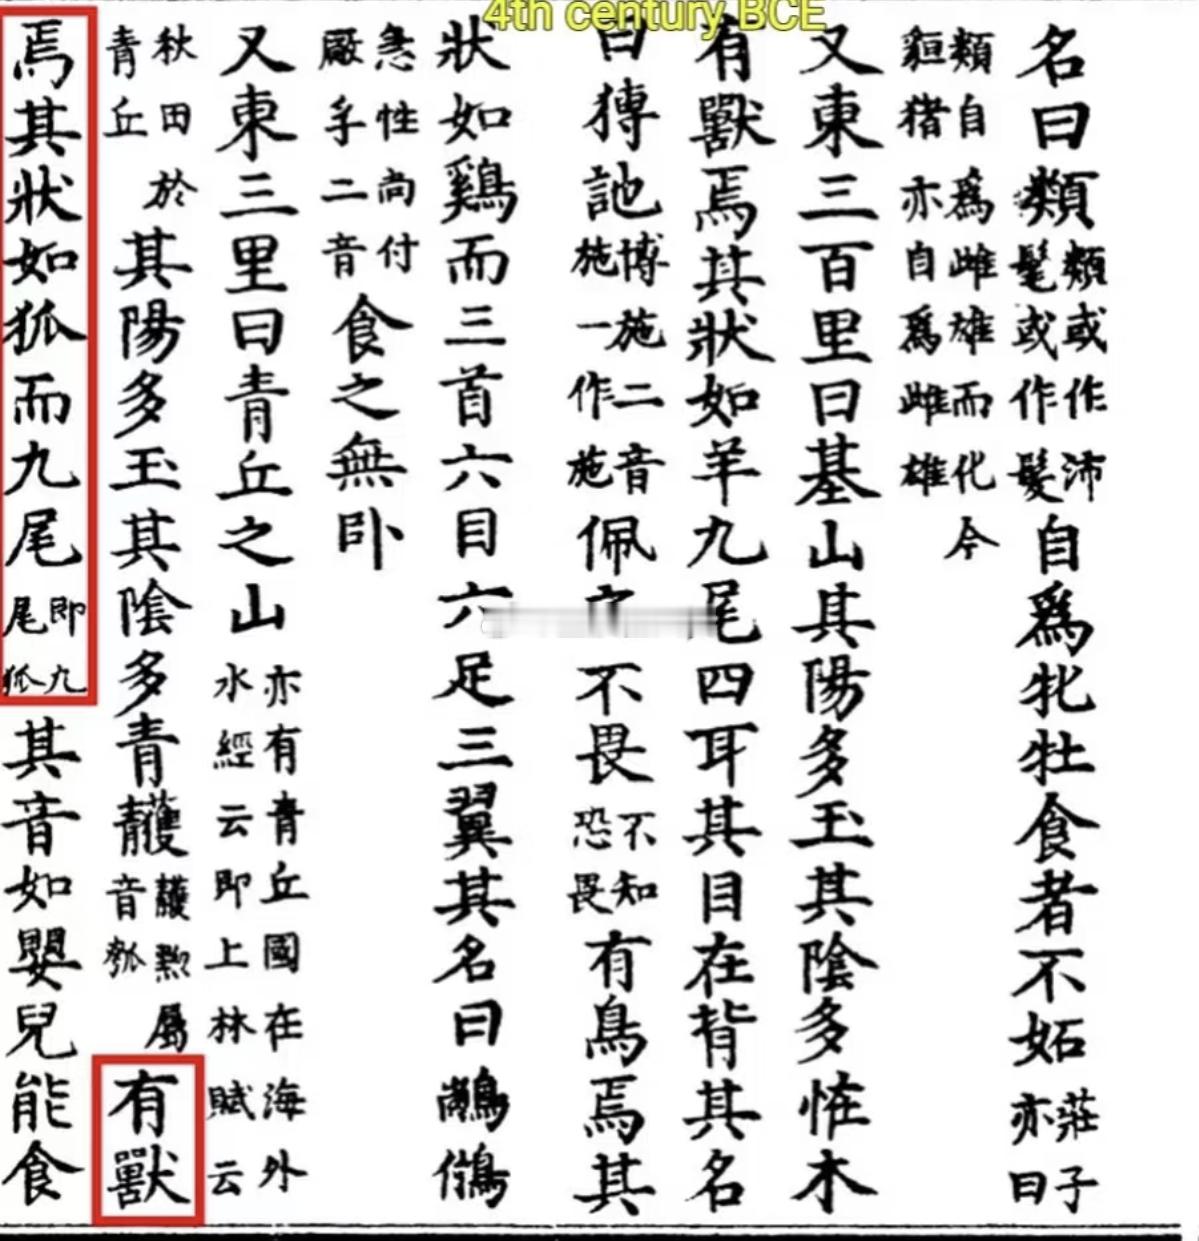 4th century BCE
名曰類類或作沛髦或作髮自爲牝牡食者不妬莊子亦曰
類自爲雌雄而化今貆猪亦自爲雌雄
又東三百里曰基山其陽多玉其陰多恠木
有獸焉其狀如羊九尾四耳其目在背其名
曰猼訑博施二音施一作施佩不畏不知恐畏有鳥焉其
狀如鷄而三首六目六足三翼其名曰
急性尚付厰孚二音食之無卧
又東三里曰青丘之山亦有青丘國在海外水經云即上林賦云
秋田於青丘其陽多玉其陰多青䨼䨼黝屬音瓠有獸
焉其狀如狐而九尾即九尾狐其音如嬰兒能食